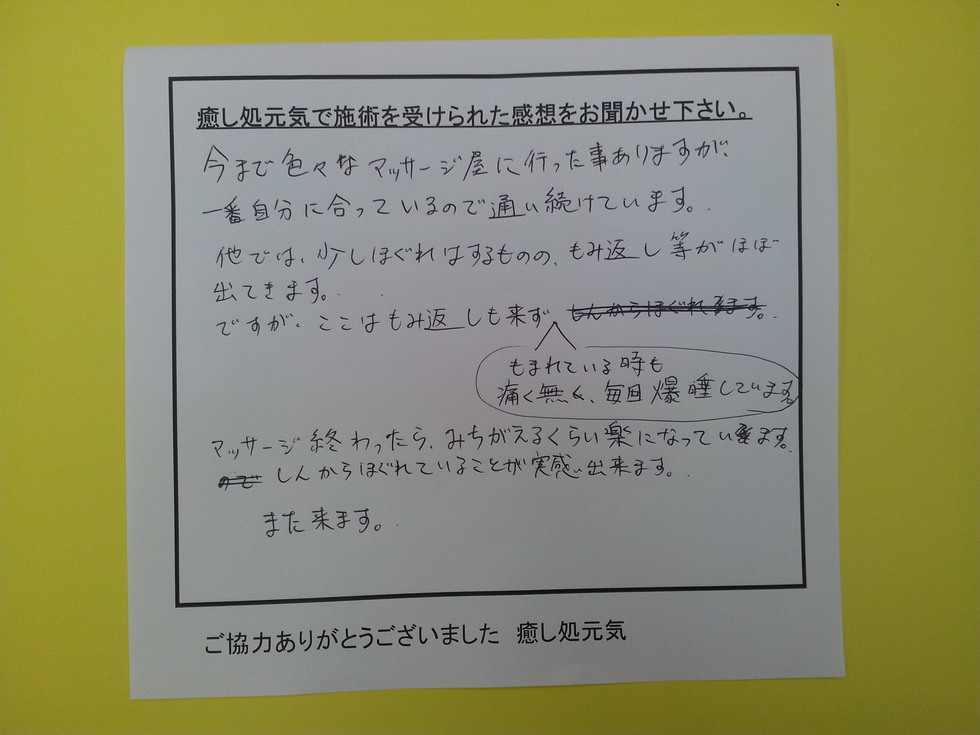 癒し処元気で施術を受けられた感想をお聞かせ下さい。
今まで色々なマッサージ屋に行った事ありますが、
一番自分に合っているので通い続けています。
他では、少しほぐれはするものの、もみ返し等がほぼ
出てきます。
ですが、ここはもみ返しも来ず しんからほぐれてます。
もまれている時も
痛く無く、毎回爆睡しています。
マッサージ終わったら、みちがえるくらい楽になっています。
ので しんからほぐれていることが実感出来ます。
また来ます。
ご協力ありがとうございました 癒し処元気